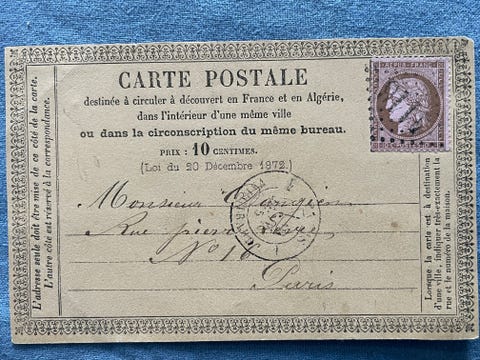 RÉPUB. FRANC.
CARTE POSTALE
destinée à circuler à découvert en France et en Algérie,
dans l'intérieur d'une même ville
ou dans la circonscription du même bureau.
PRIX : 10 CENTIMES.
[Loi du 20 Décembre 1872.]
Monsieur
Rue pierre
No 16
Paris
L'adresse seule doit être mise de ce côté de la carte.
L'autre côté est réservé à la correspondance.
Lorsque la carte est à destination
d'une ville, indiquer très-exactement la
rue et le numéro de la maison.